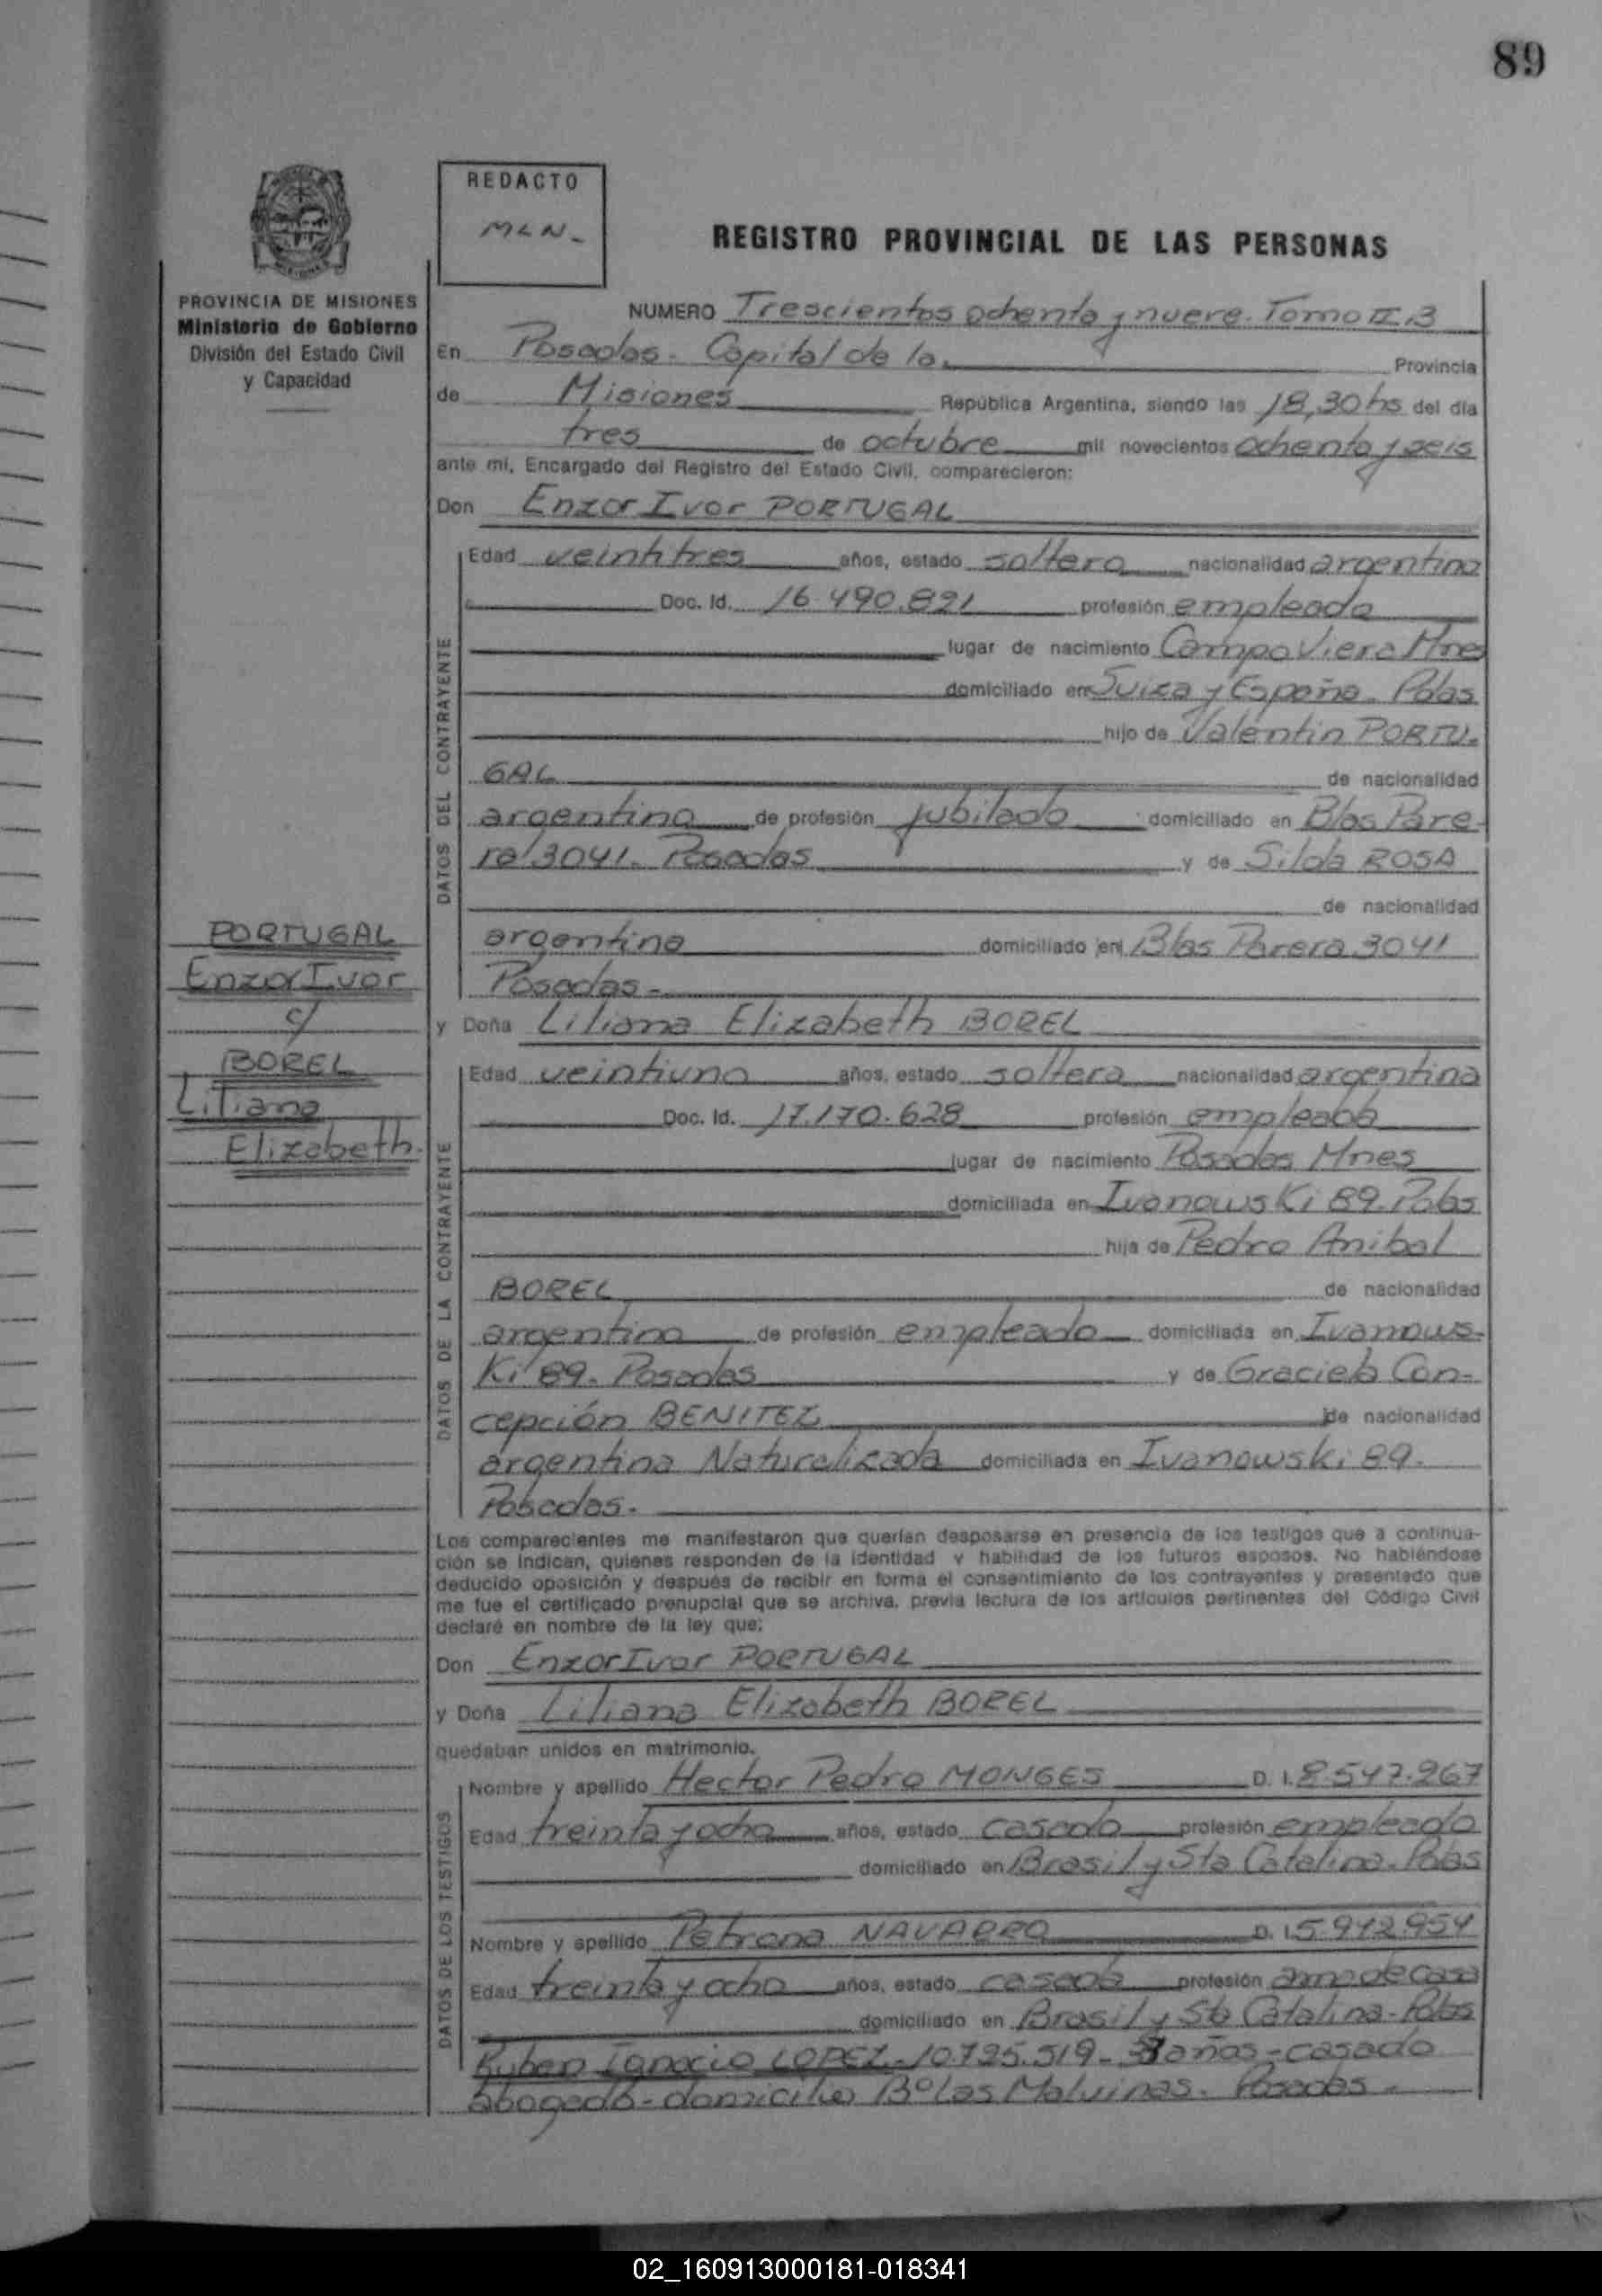 89
REDACTO
MLN-
REGISTRO PROVINCIAL DE LAS PERSONAS
PROVINCIA DE MISIONES
Ministerio de Gobierno
División del Estado Civil
y Capacidad
NUMERO Trescientos ochenta y nueve. Tomo II.3
En Posadas. Capital de la Provincia
de Misiones República Argentina, siendo las 18,30 hs del día
tres de octubre mil novecientos ochenta y seis
ante mí, Encargado del Registro del Estado Civil, comparecieron:
Don Enzor Ivor PORTUGAL
DATOS DEL CONTRAYENTE
Edad veintitres años, estado soltero nacionalidad argentina
Doc. Id. 16.490.821 profesión empleado
lugar de nacimiento Campo Viera Mnes
domiciliado en Suiza y España. Pdas
hijo de Valentin PORTU-
GAL de nacionalidad
argentina de profesión jubilado domiciliado en Blas Pare-
ra 3041. Posadas y de Silda ROSA
de nacionalidad
argentina domiciliado en Blas Parera 3041
Posadas-
PORTUGAL
Enzor Ivor
c/
BOREL
Liliana
Elizabeth.
y Doña Liliana Elizabeth BOREL
DATOS DE LA CONTRAYENTE
Edad veintiuno años, estado soltera nacionalidad argentina
Doc. Id. 17.170.628 profesión empleada
lugar de nacimiento Posadas Mnes
domiciliada en Ivanowski 89. Pdas
hija de Pedro Anibal
BOREL de nacionalidad
argentina de profesión empleado domiciliada en Ivanows-
Ki 89. Posadas y de Graciela Con-
cepción BENITEZ de nacionalidad
argentina Naturalizada domiciliada en Ivanowski 89.
Posadas.
Los comparecientes me manifestaron que querían desposarse en presencia de los testigos que a continua-
ción se indican, quienes responden de la identidad y habilidad de los futuros esposos. No habiéndose
deducido oposición y después de recibir en forma el consentimiento de los contrayentes y presentado que
me fue el certificado prenupcial que se archiva, previa lectura de los artículos pertinentes del Código Civil
declaré en nombre de la ley que:
Don Enzor Ivor PORTUGAL
y Doña Liliana Elizabeth BOREL
quedaban unidos en matrimonio.
DATOS DE LOS TESTIGOS
Nombre y apellido Hector Pedro MONGES D. I. 8.547.267
Edad treinta y ocho años, estado casado profesión empleado
domiciliado en Brasil y Sta Catalina. Pdas
Nombre y apellido Petrona NAVARRO D. I. 5.942.954
Edad treinta y ocho años, estado casada profesión ama de casa
domiciliado en Brasil y Sta Catalina-Pdas
Ruben Ignacio LOPEZ-10.725.519- años-casado
abogado-domicilio Bº Las Malvinas. Posadas-
02_160913000181-018341